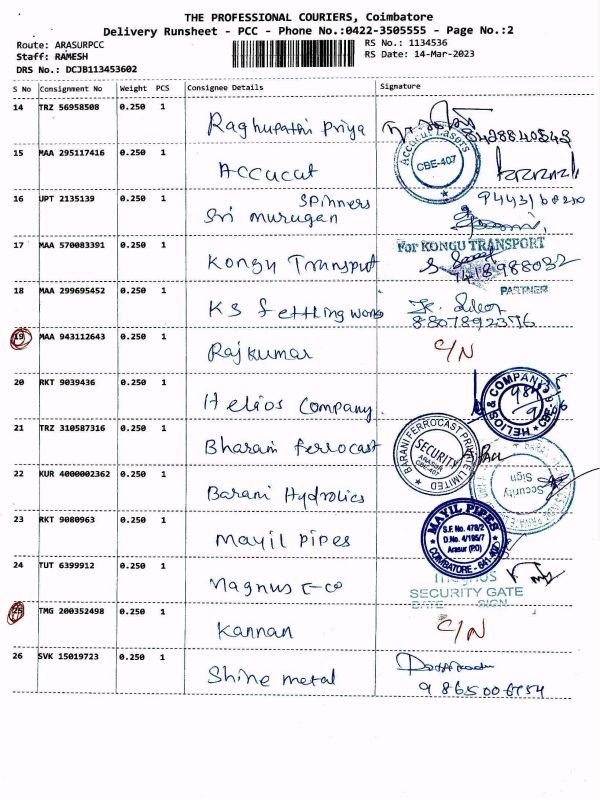 THE PROFESSIONAL COURIERS, Coimbatore
Delivery Runsheet - PCC - Phone No.:0422-3505555 - Page No.:2
Route: ARASURPCC
RS No.: 1134536
Staff: RAMESH
RS Date: 14-Mar-2023
DRS No.: DCJB113453602
S No Consignment No Weight PCS Consignee Details Signature
14 TRZ 56958508 0.250 1 Raghupathi Priya
15 MAA 295117416 0.250 1 Accucut
Accucut Lasers CBE-407
16 UPT 2135139 0.250 1 Sri Murugan Spinners
17 MAA 570083391 0.250 1 Kongu Transput
For KONGU TRANSPORT
PARTNER
18 MAA 299695452 0.250 1 KS Fettling works
8807892376
19 MAA 943112643 0.250 1 Rajkumar C/N
20 RKT 9039436 0.250 1 Helios Company
HELIOS & COMPANY
21 TRZ 310587316 0.250 1 Bharani ferrocast
BARANI FERROCAST PRIVATE LIMITED SECURITY ARASUR CBE-407
22 KUR 4000002362 0.250 1 Barani Hydrolics
Security Sign
23 RKT 9080963 0.250 1 Mayil Pipes
MAYIL PIPES S.F. No. 478/2 D.No. 4/195/7 Arasur (P.O) COIMBATORE - 641 407
24 TUT 6399912 0.250 1 Magnus E-co
magnus
SECURITY GATE
DATE SIGN
25 TMG 200352498 0.250 1 Kannan C/N
26 SVK 15019723 0.250 1 Shine metal